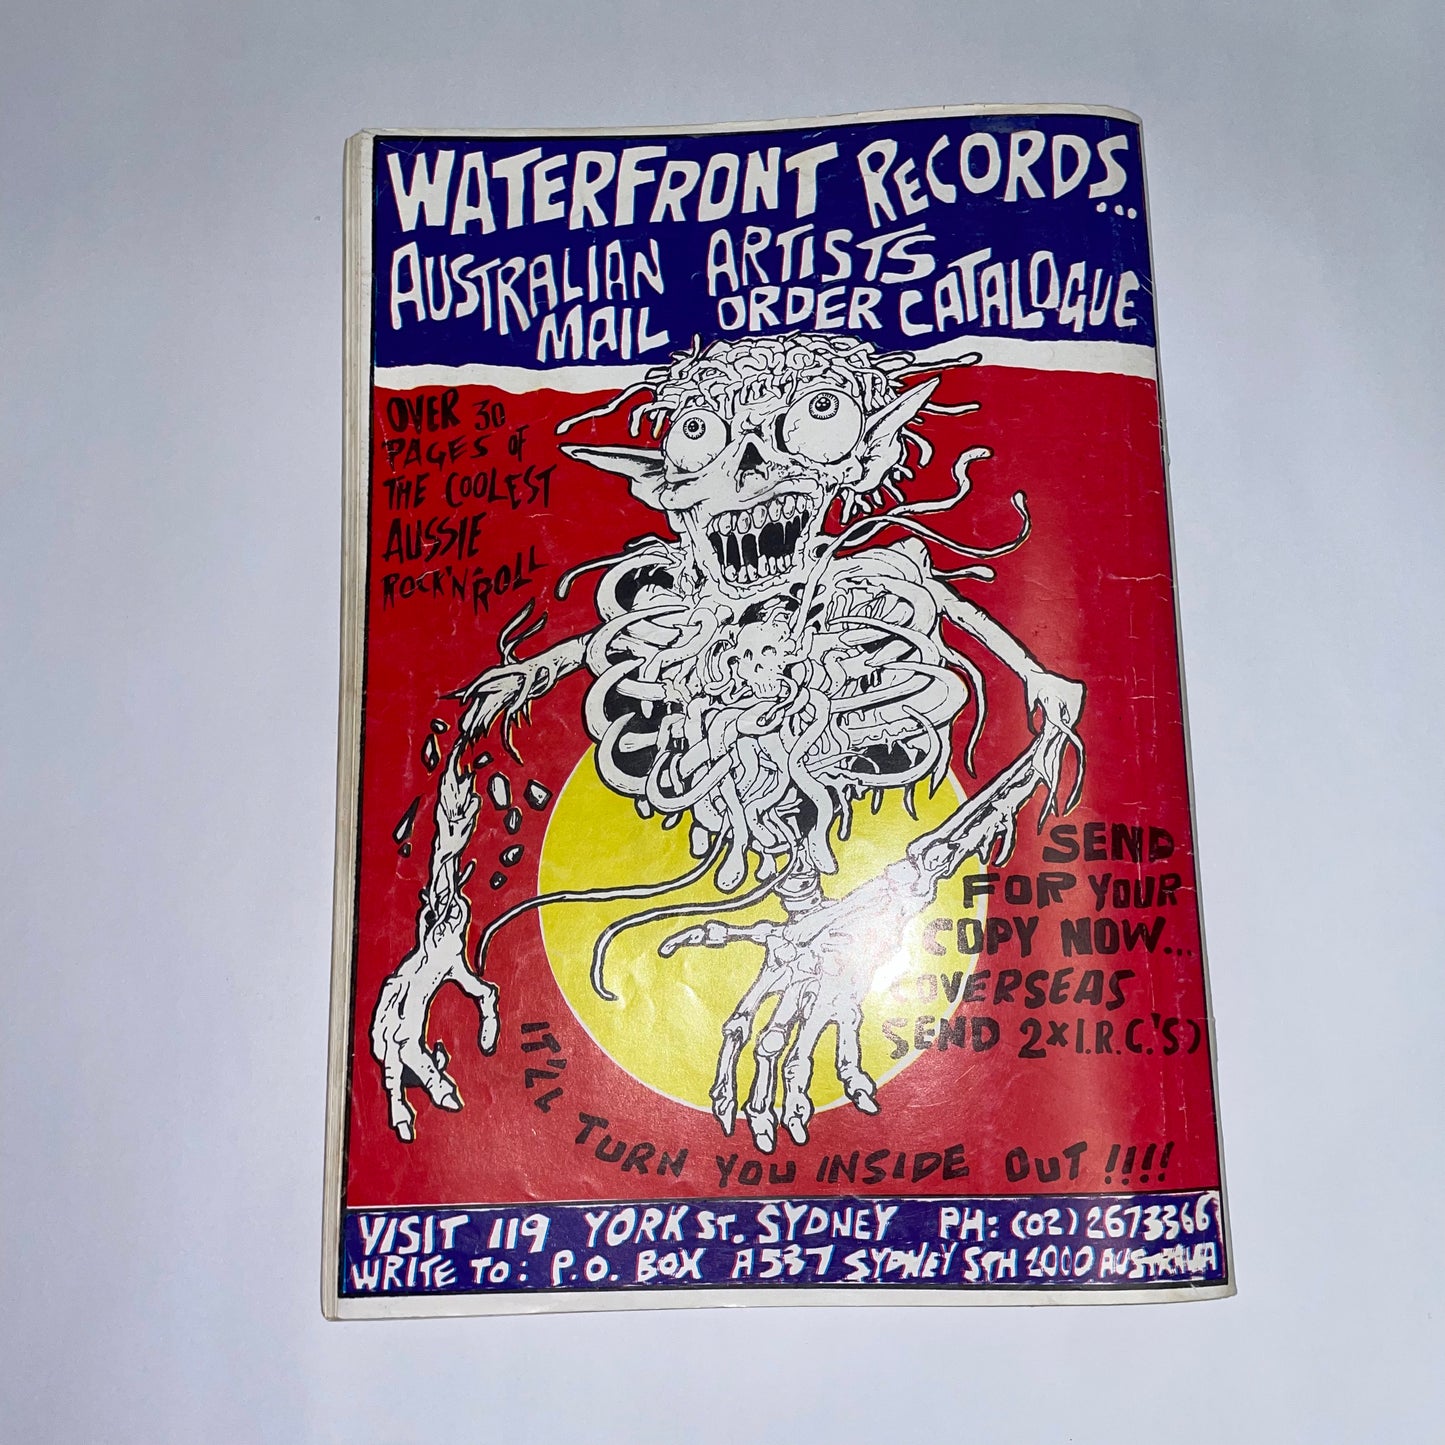 WATERFRONT RECORDS...
AUSTRALIAN ARTISTS
MAIL ORDER CATALOGUE
OVER 30
PAGES OF
THE COOLEST
AUSSIE
ROCK'N'ROLL
SEND
FOR YOUR
COPY NOW...
(OVERSEAS
SEND 2x I.R.C.'S)
IT'LL TURN YOU INSIDE OUT !!!!
VISIT 119 YORK ST. SYDNEY PH: (02) 2673366
WRITE TO: P.O. BOX A537 SYDNEY STH 2000 AUSTRALIA